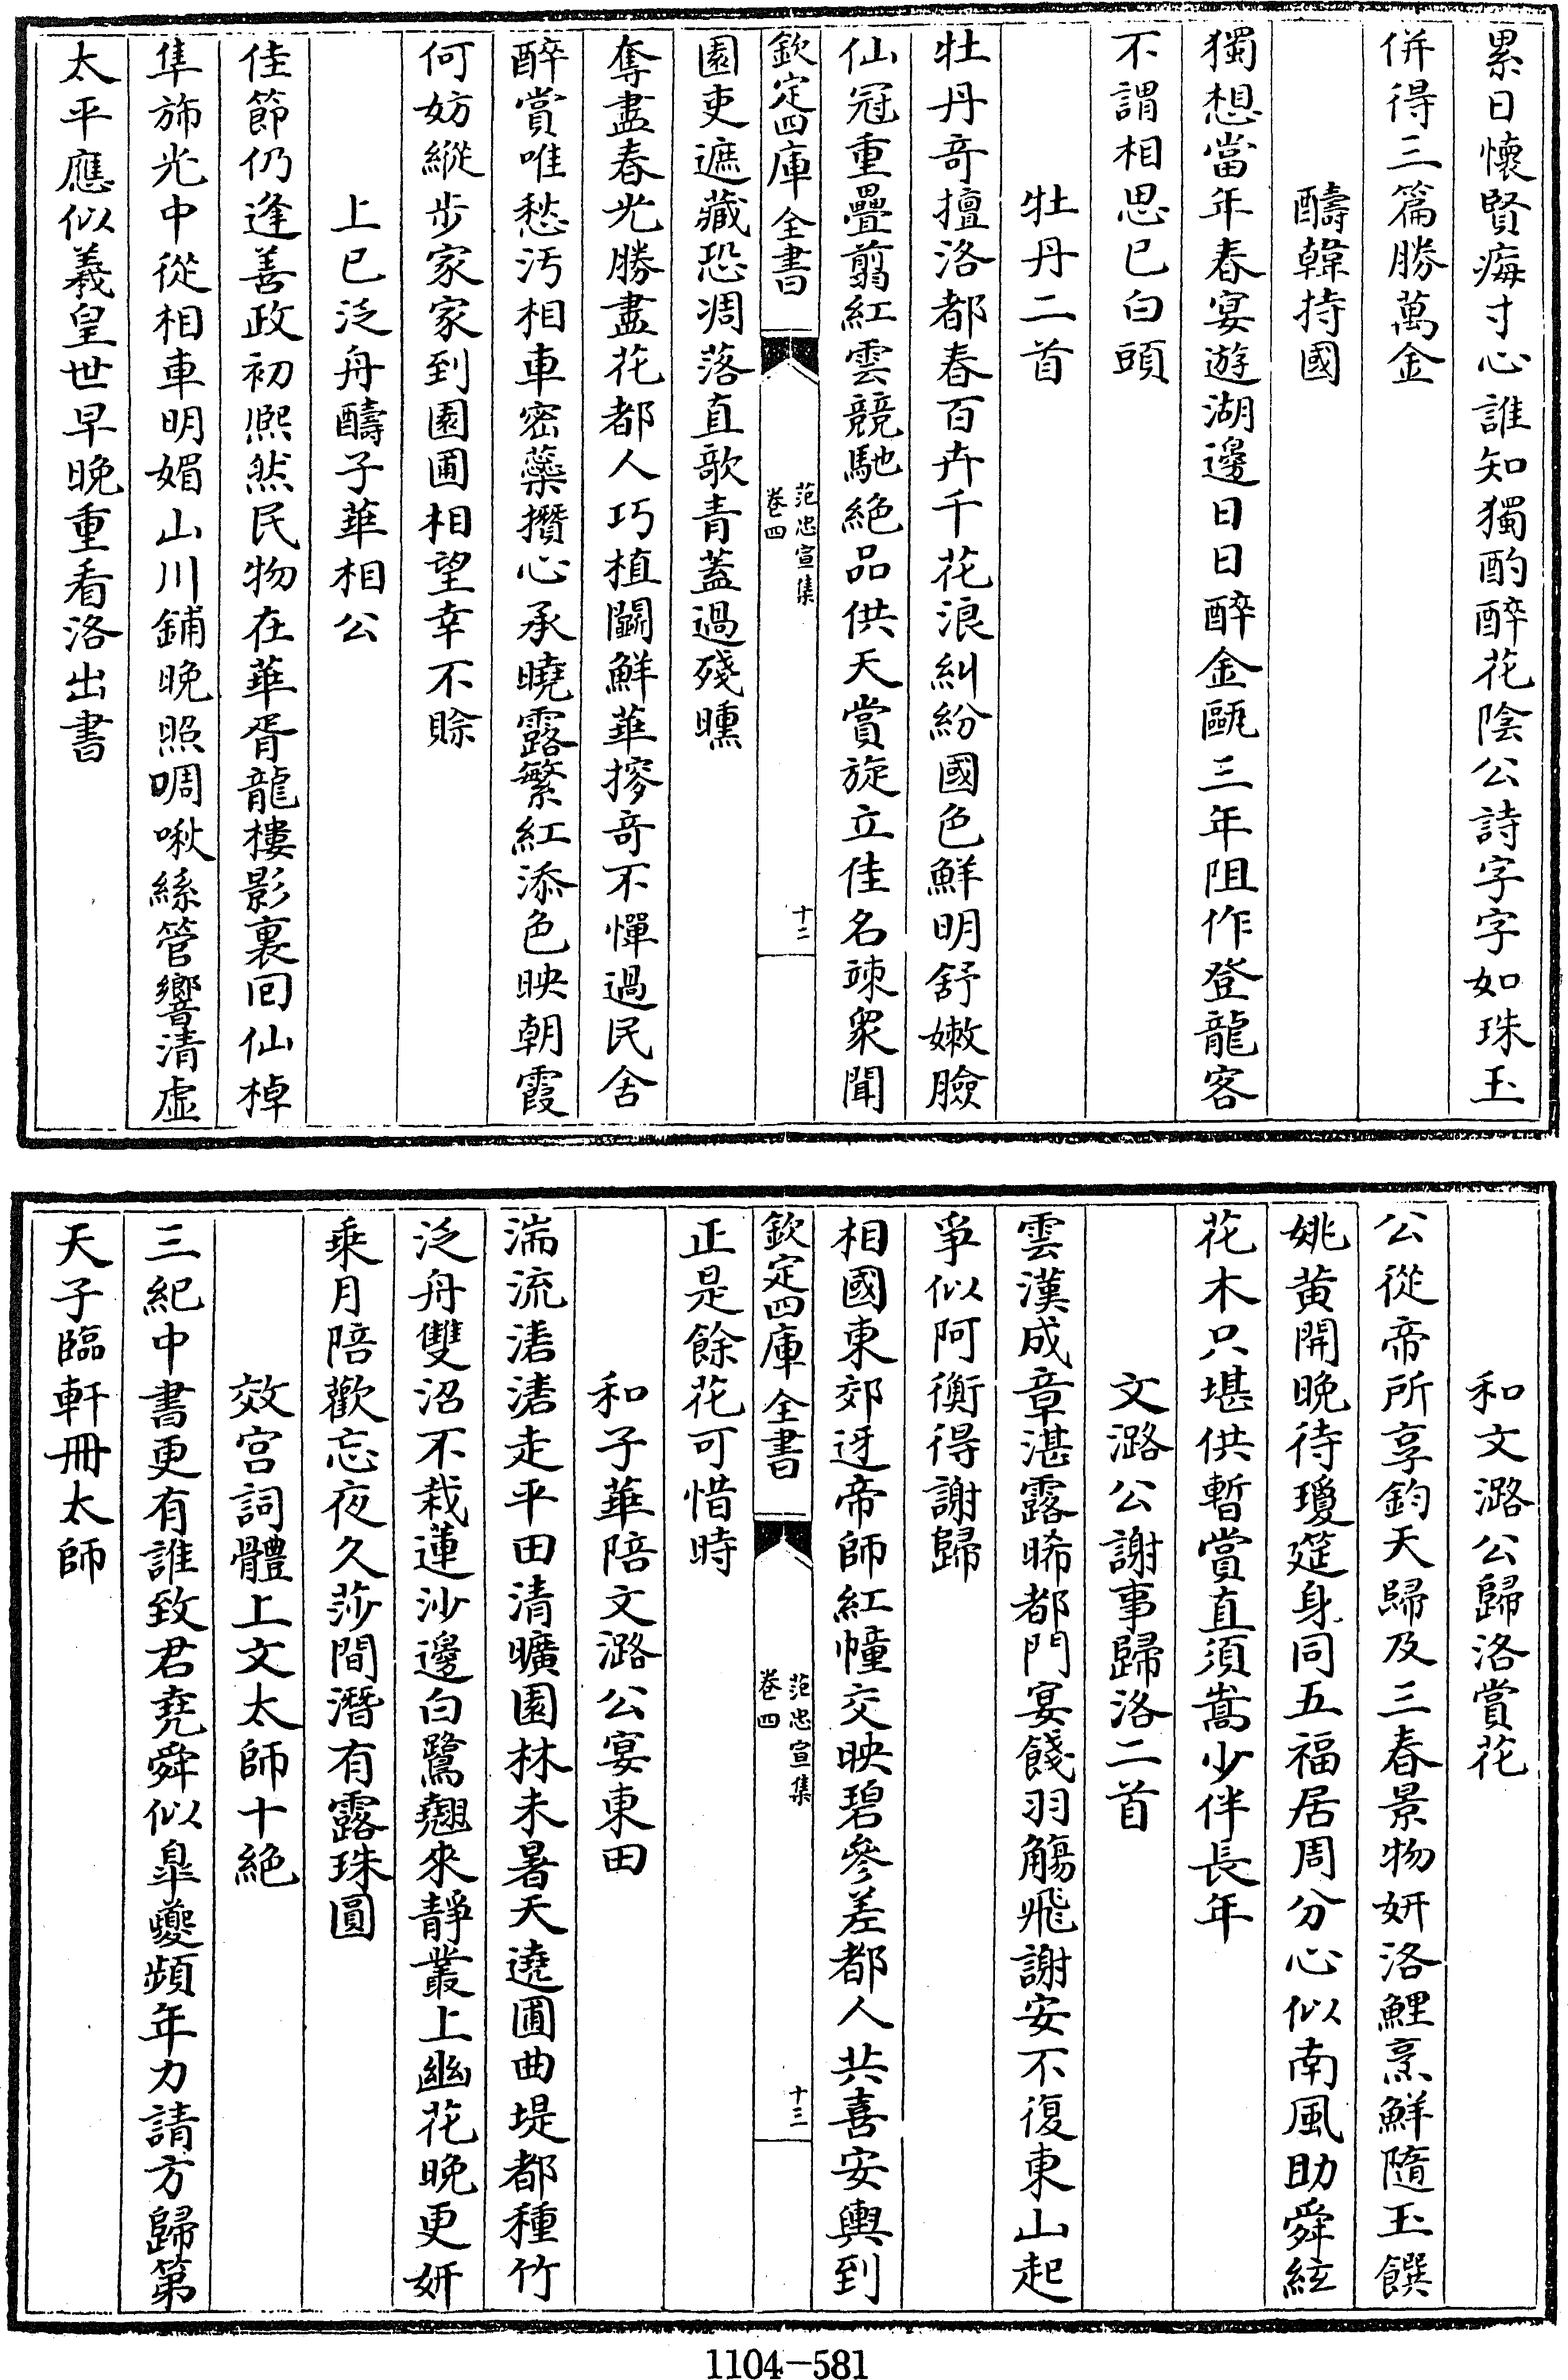 累日懷賢痗寸心誰知獨酌醉花陰公詩字字如珠玉
併得三篇勝萬金
醻韓持國
獨想當年春宴遊湖邊日日醉金甌三年阻作登龍客
不謂相思已白頭
牡丹二首
牡丹奇擅洛都春百卉千花浪糾紛國色鮮明舒嫩臉
仙冠重疊翦紅雲競馳絶品供天賞旋立佳名竦衆聞
欽定四庫全書
范忠宣集
卷四
十二
園吏遮藏恐凋落直歌青蓋過殘曛
奪盡春光勝盡花都人巧植鬭鮮華摎奇不憚過民舍
醉賞唯愁汚相車密蘂攢心承曉露繁紅添色映朝霞
何妨縱步家家到園圃相望幸不賖
上巳泛舟醻子華相公
佳節仍逢善政初熈然民物在華胥龍樓影裏回仙棹
隼斾光中從相車明媚山川鋪晚照啁啾絲管響清虛
太平應似羲皇世早晚重看洛出書
和文潞公歸洛賞花
公從帝所享鈞天歸及三春景物妍洛鯉烹鮮隨玉饌
姚黄開晚待瓊筵身同五福居周分心似南風助舜絃
花木只堪供暫賞直須嵩少伴長年
文潞公謝事歸洛二首
雲漢成章湛露晞都門宴餞羽觴飛謝安不復東山起
爭似阿衡得謝歸
相國東郊迓帝師紅幢交映碧參差都人共喜安輿到
欽定四庫全書
范忠宣集
卷四
十三
正是餘花可惜時
和子華陪文潞公宴東田
湍流濜濜走平田清曠園林未暑天遶圃曲堤都種竹
泛舟雙沼不栽蓮沙邊白鷺翹來靜叢上幽花晚更妍
乗月陪歡忘夜久莎間潛有露珠圓
效宫詞體上文太師十絶
三紀中書更有誰致君堯舜似臯夔頻年力請方歸第
天子臨軒冊太師
1104-581